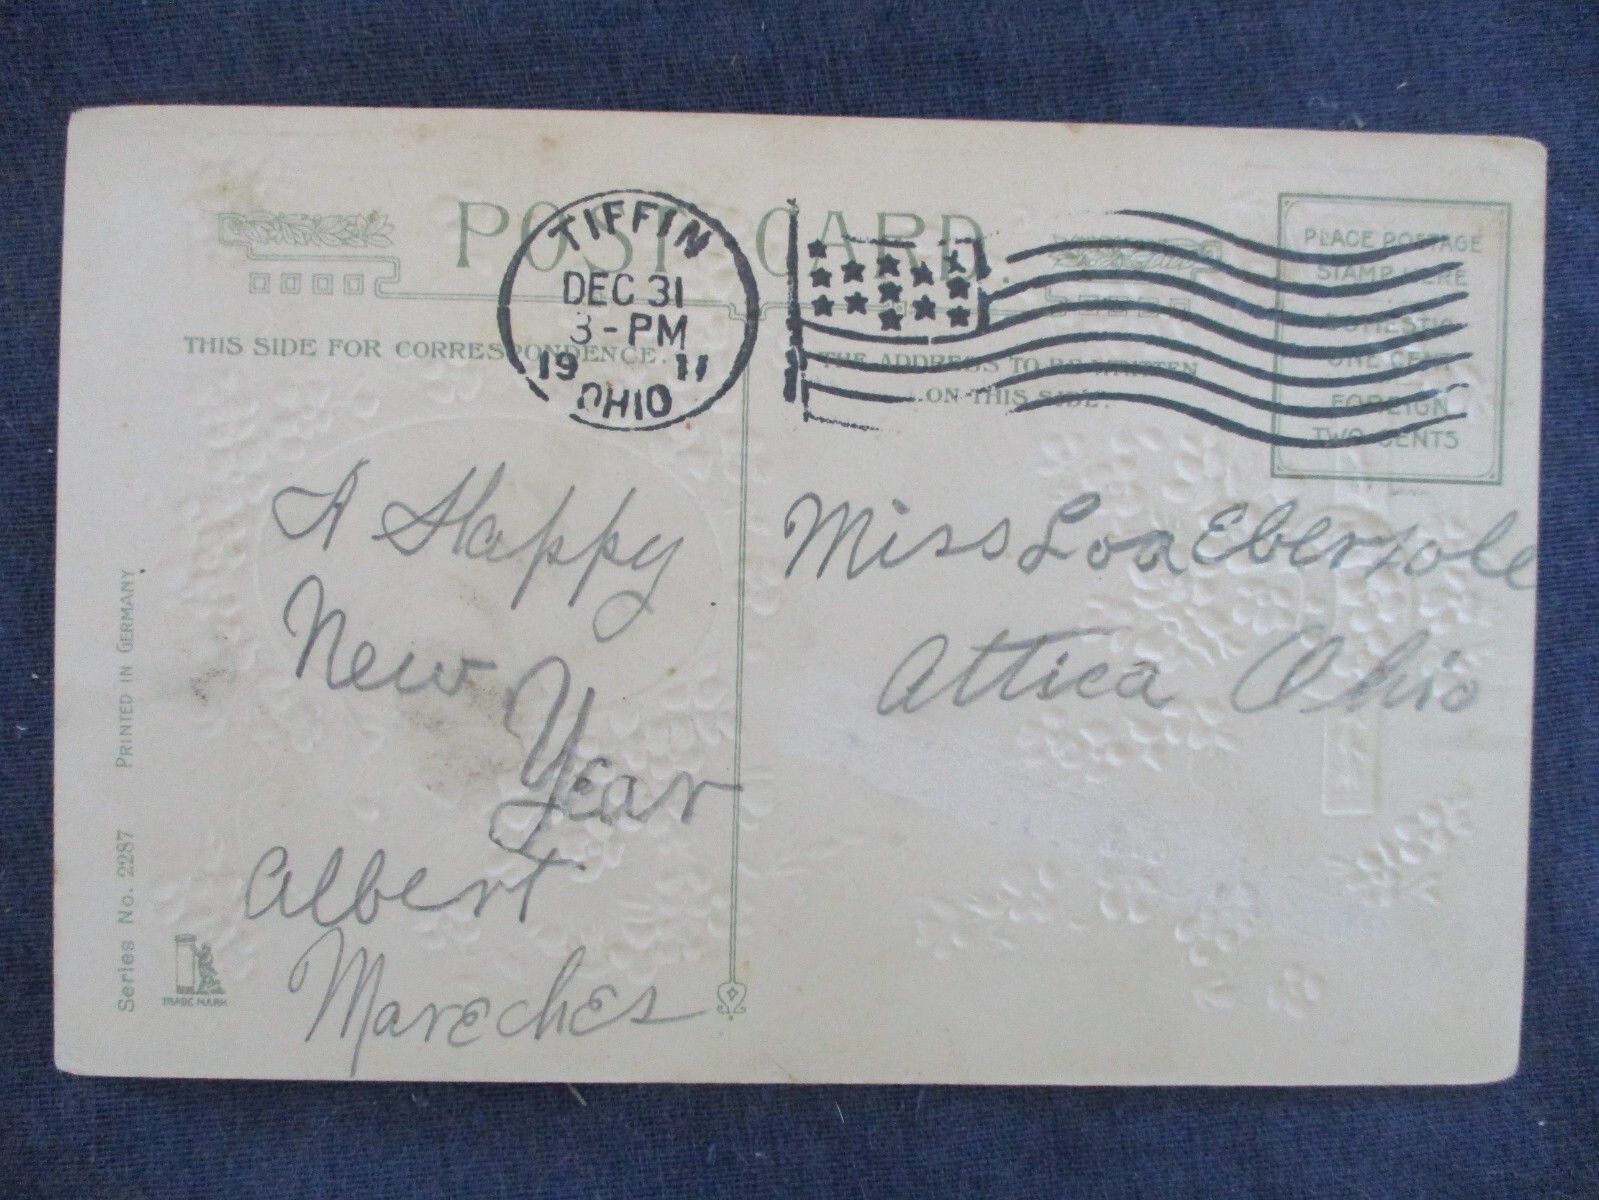 POST CARD.
TIFFIN
DEC 31
3-PM
19 11
OHIO
PLACE POSTAGE
STAMP HERE
DOMESTIC
ONE CENT
FOREIGN
TWO CENTS
THIS SIDE FOR CORRESPONDENCE.
THE ADDRESS TO BE WRITTEN
ON THIS SIDE.
A Happy
New
Year
Albert
Mareches
Miss Loa Ebersole
Attica Ohio
Series No. 2287 PRINTED IN GERMANY
TRADE MARK